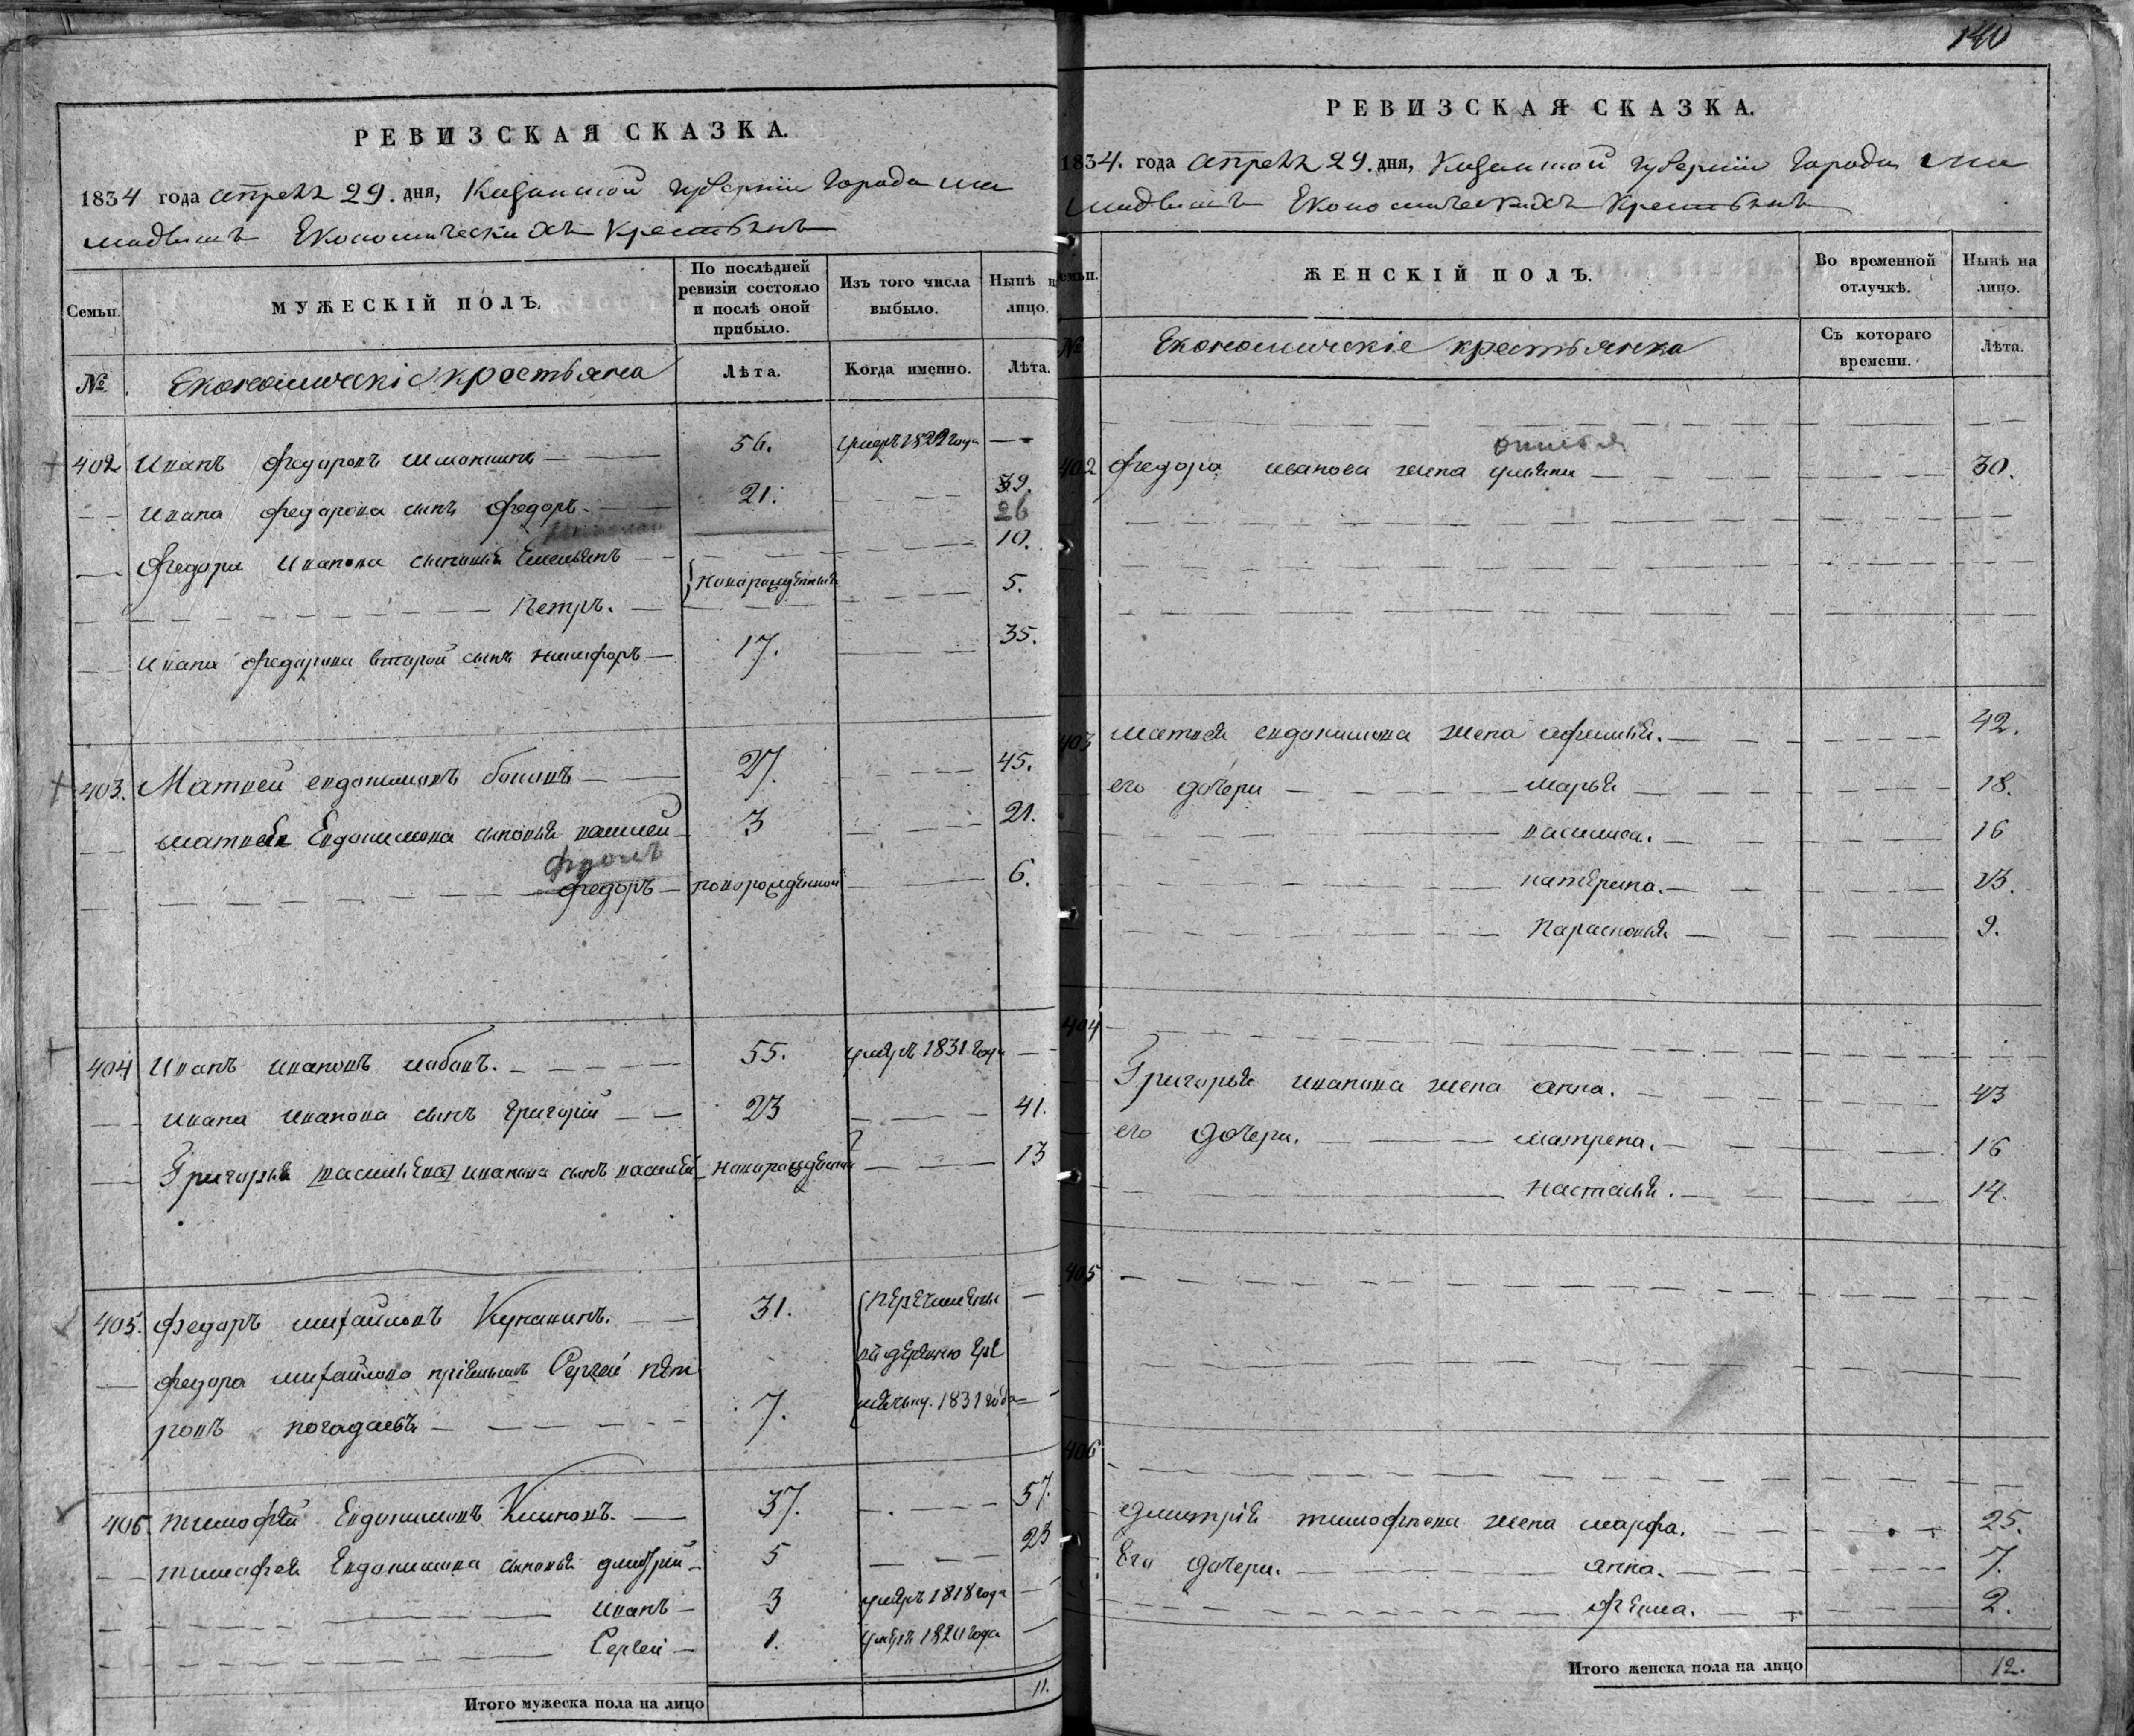 РЕВИЗСКАЯ СКАЗКА.
1834 года апреля 29. дня, Казанской губернии города ма
мадыша Економическихъ крестьянъ
Семьи.
МУЖЕСКІЙ ПОЛЪ.
По послѣдней ревизіи состояло и послѣ оной прибыло.
Изъ того числа выбыло.
Нынѣ на лицо.
№
Економическіе крестьяна
Лѣта.
Когда именно.
Лѣта.
402 Иванъ федаровъ 56. умеръ 1822 года
Ивана федарова сынъ федоръ. 21. 39.
26
федора Иванова сыновья Емельянъ 10.
новарожденныя
Петръ. 5.
Ивана федарова второй сынъ никифоръ 17. 35.
403. Матвей евдокимовъ бокинъ 27. 45.
матвея Евдокимова сыновья василей 3 21.
фролъ
федоръ новорожденной 6.
404 Иванъ ивановъ лабовъ. 55. умеръ 1831 года
ивана иванова сынъ григорій 23 41.
Григорья васильева иванова сынъ василей новарожденной 13
405. федаръ михайловъ Кукакинъ. 31. перечислены
федора михайлова пріемышъ Сергей пет въ деревню
ровъ погадаевъ 7. 1831 года
406 тимофей Евдокимовъ Климовъ. 37. 57.
тимофея Евдокимова сыновья дмитрей 5 23
иванъ 3 умеръ 1818 года
Сергей 1. умеръ 1820 года
Итого мужеска пола на лицо 11.
140
РЕВИЗСКАЯ СКАЗКА.
1834. года апреля 29. дня, Казанской губерніи города ма
мадыша Економическихъ крестьянъ
Семьи.
ЖЕНСКІЙ ПОЛЪ.
Во временной отлучкѣ.
Нынѣ на лицо.
№
Економическіе крестьянка
Съ котораго времени.
Лѣта.
402 федора иванова жена ульяна 30.
403 матвея евдокимова жена афимья. 42.
его дочери марья 18.
василиса. 16
катерина. 13.
Парасковья 9.
404
Григорья иванова жена анна. 43
его дочери. матрена. 16
настасья. 14.
405
406
дмитрія тимофеева жена марфа. 25.
Его дочери. анна. 7.
фекла. 2.
Итого женска пола на лицо 12.